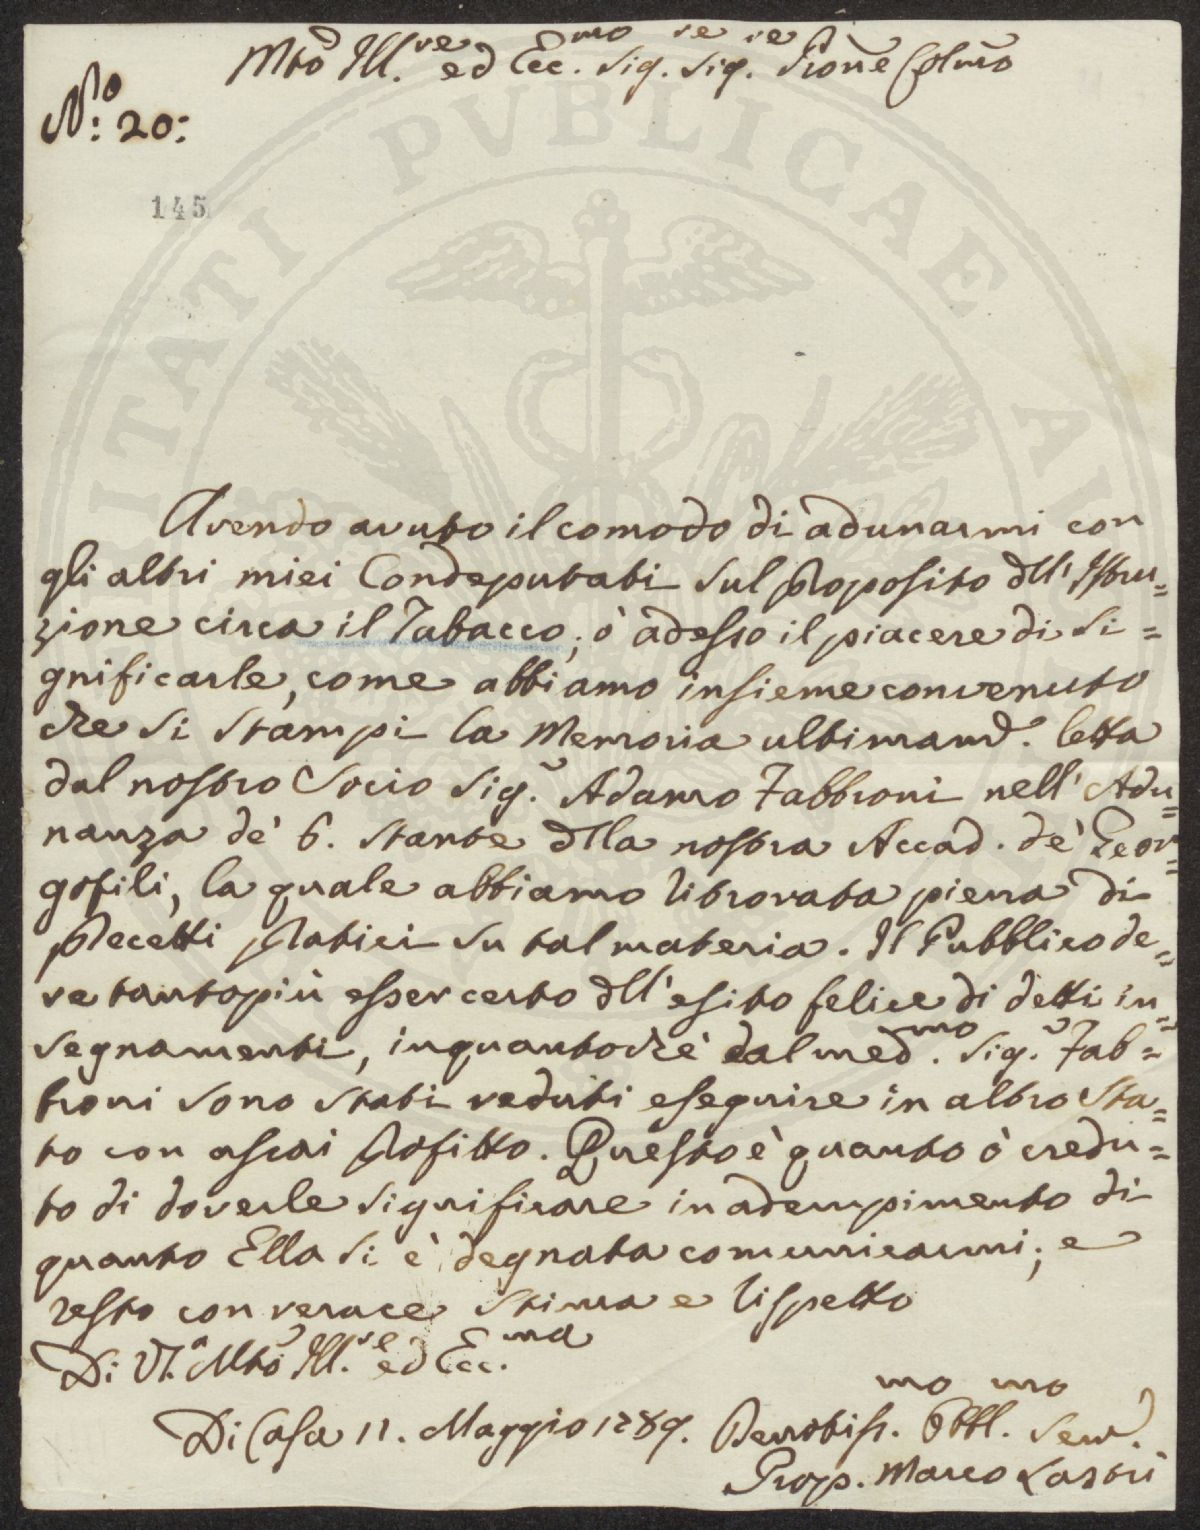 Mto Ill.re ed Ecc.mo Sig.re Sig.re Prone Colmo
No: 20:
145
UTILITATI PVBLICAE
Avendo avuto il comodo di adunarmi con
gli altri miei Condeputati sul proposito dll' Istru=
zione circa il Tabacco, ò adesso il piacere di si=
gnificarle, come abbiamo insieme convenuto
che si stampi la Memoria ultimamd. letta
dal nostro Socio Sig. Adamo Fabbroni nell' Adu=
nanza de' 6. stante dlla nostra Accad. de' Geor=
gofili, la quale abbiamo ritrovata piena di
precetti pratici su tal materia. Il Pubblico de=
ve tantopiù esser certo dll' esito felice di detti in=
segnamenti, inquantochè dal med.mo Sig. Fab=
broni sono stati veduti eseguire in altro Sta=
to con assai profitto. Questo è quanto ò credu=
to di doverle significare in adempimento di
quanto Ella si è degnata comunicarmi; e
resto con verace stima e rispetto
Di VS.a Mto Ill.re ed Ecc.ma
Di Casa 11. Maggio 1789. Devotiss.mo Obbl.mo Serv.
Prop. Marco Lastri